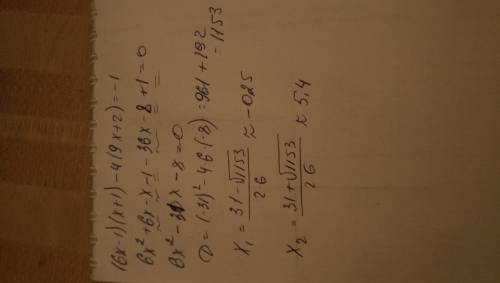 (6x-1)(x+1)-4(9x+2)=-1
6x²+6x-x-1-36x-8+1=0
6x²-31x-8=0
D=(-31)²-4·6·(-8)=961+192=1153
x₁=31-√1153/2·6≈-0,25
x₂=31+√1153/2·6≈5,4